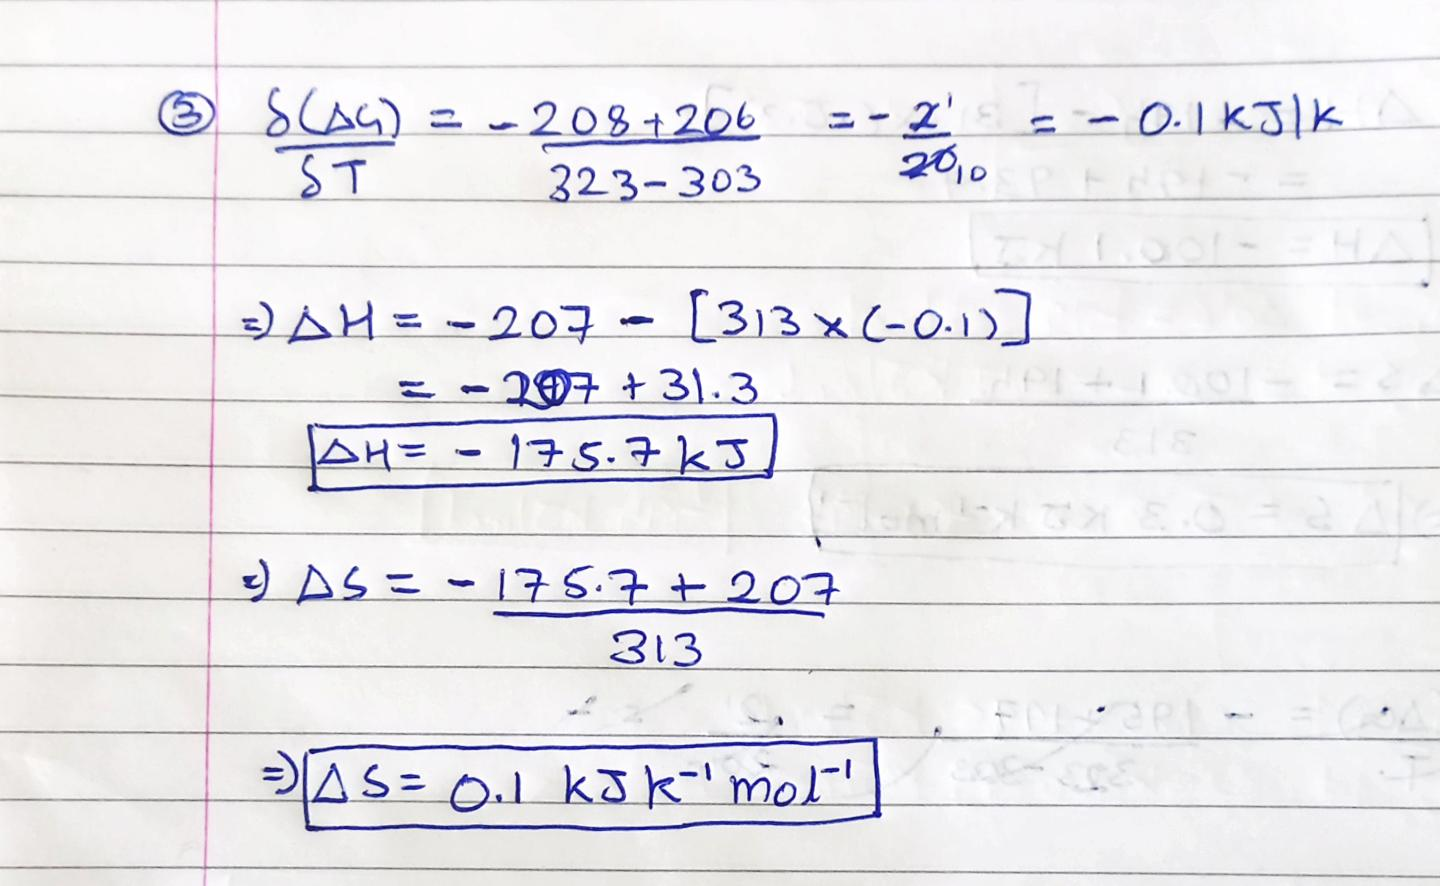 ③ δ(ΔG)/δT = -208+206/323-303 = -2 1/20 10 = -0.1 kJ/k
⇒ ΔH = -207 - [313 × (-0.1)]
= -207 + 31.3
ΔH = -175.7 kJ
⇒ ΔS = -175.7 + 207/313
⇒ ΔS = 0.1 kJ k⁻¹ mol⁻¹